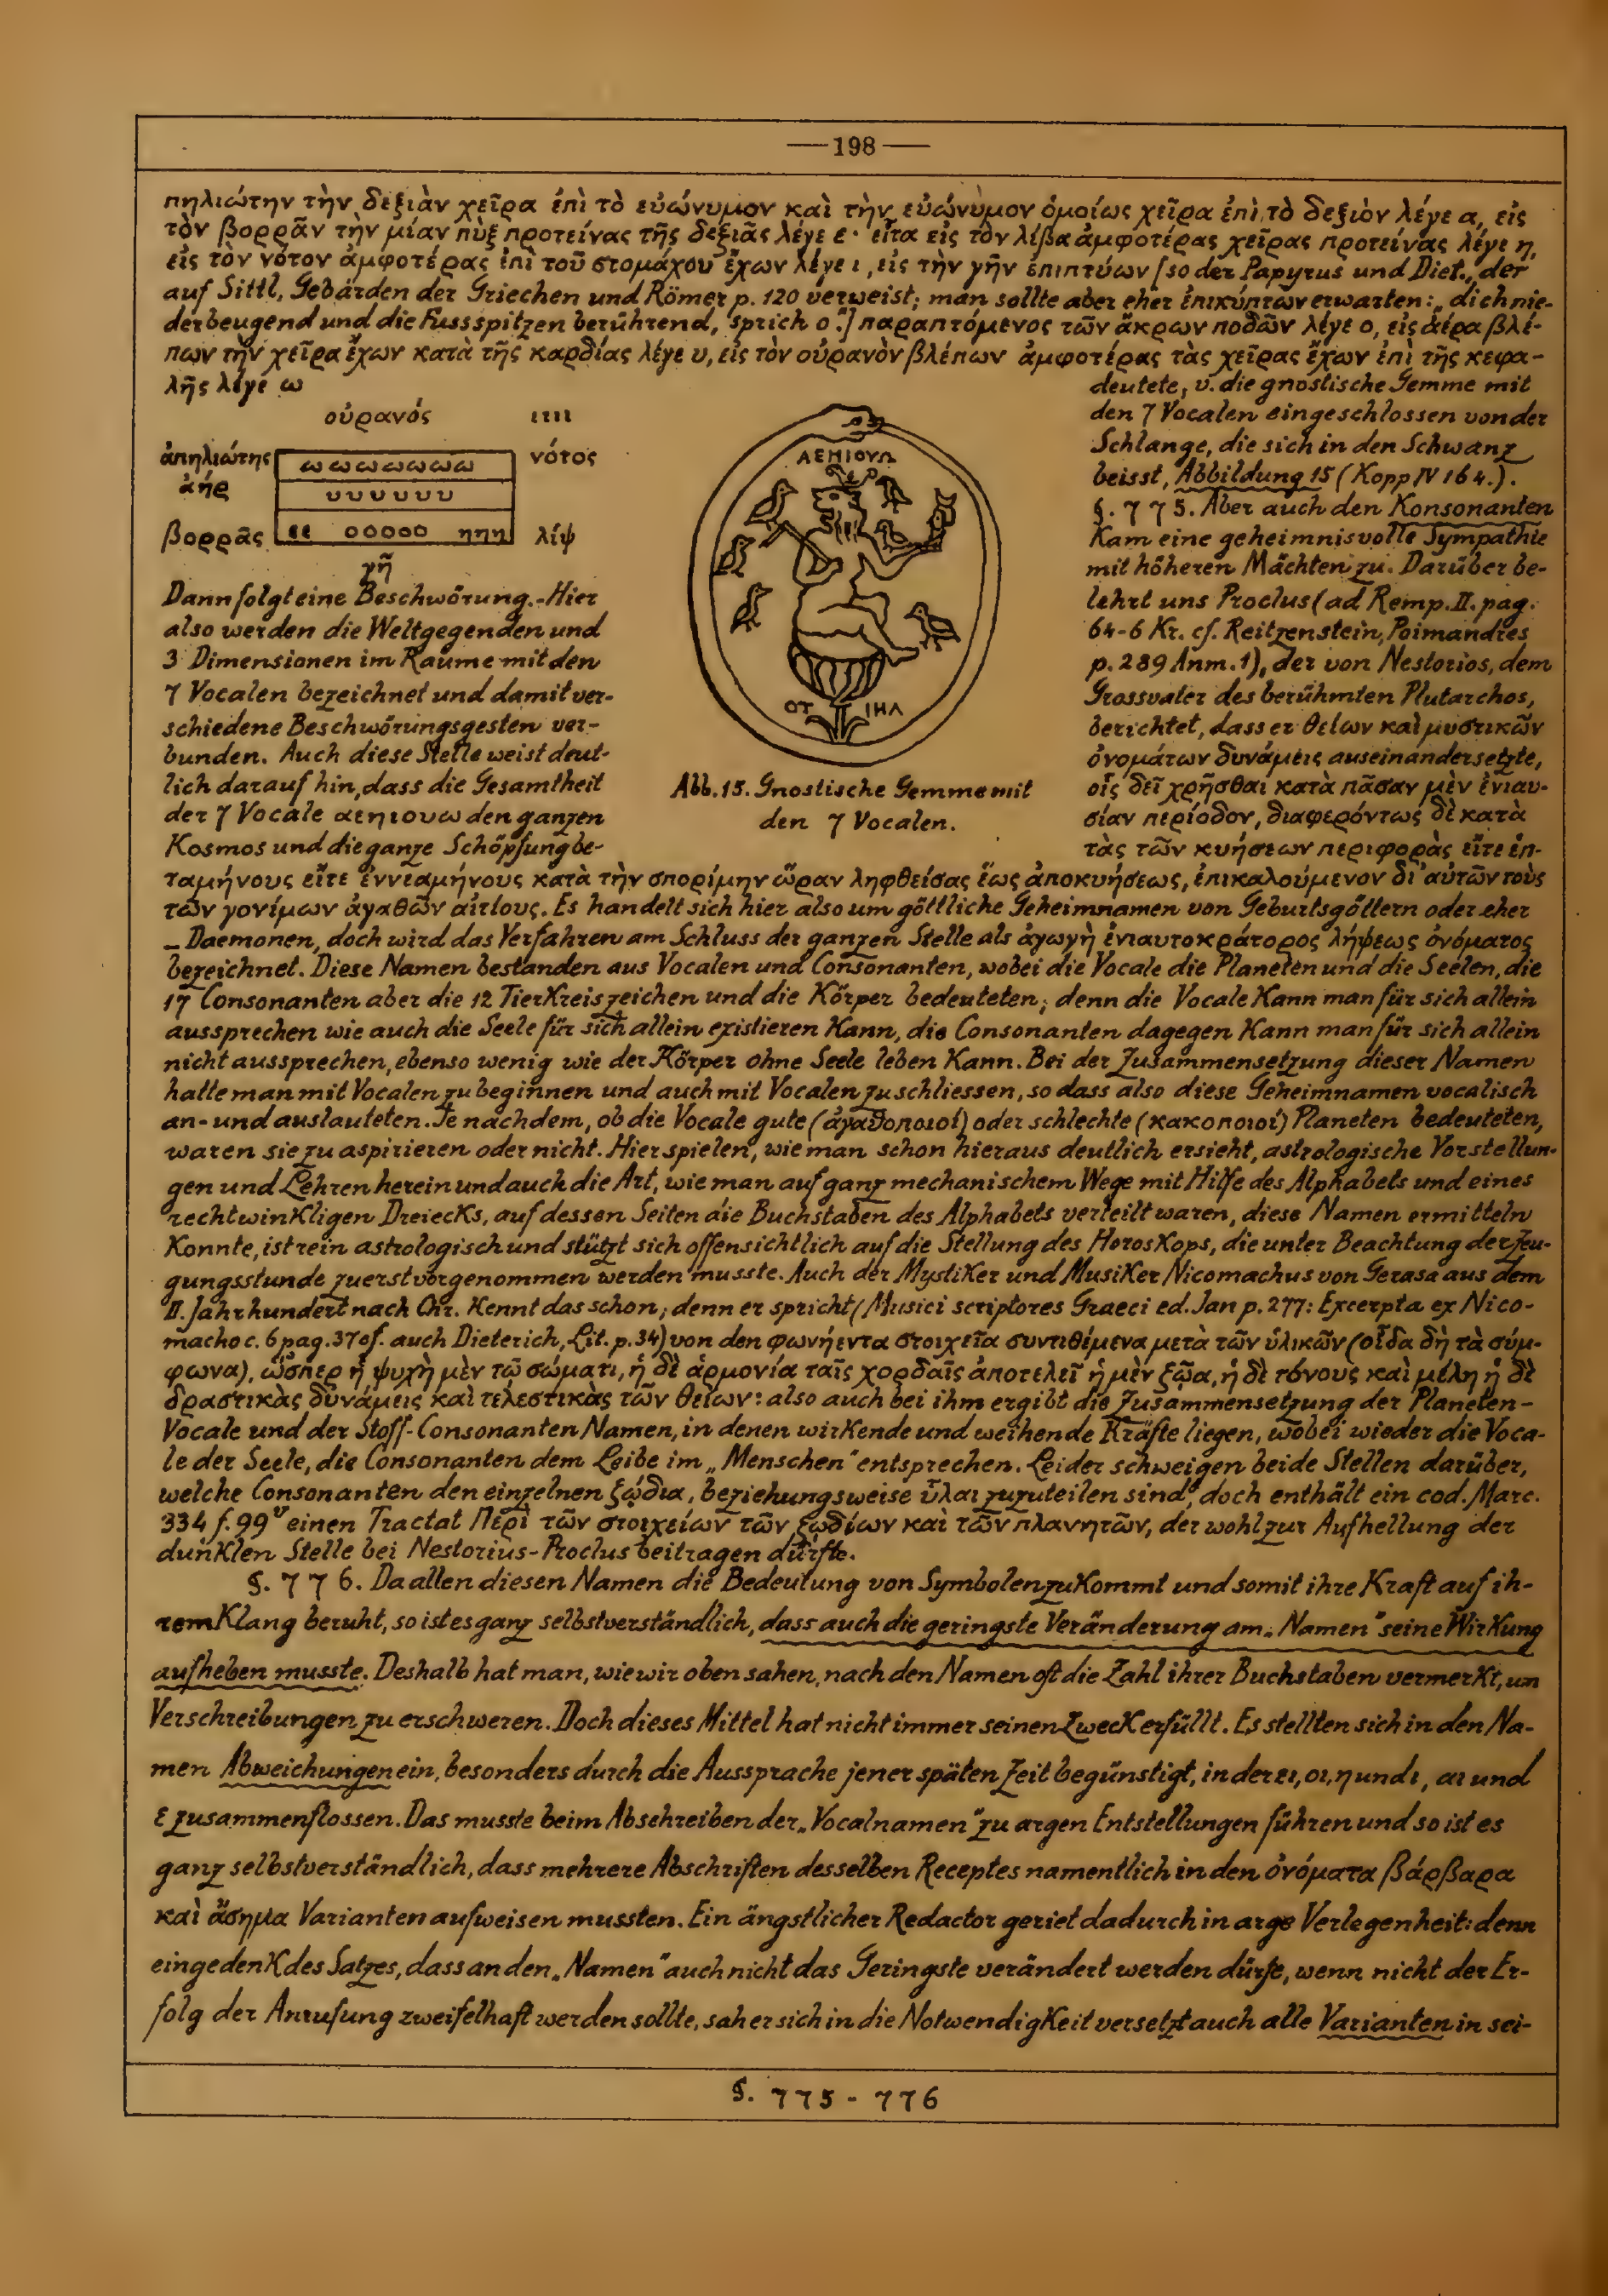 —198—
πηλιώτην τὴν δεξιὰν χεῖρα ἐπὶ τὸ εὐώνυμον καὶ τὴν εὐώνυμον ὁμοίως χεῖρα ἐπὶ τὸ δεξιὸν λέγε α, εἰς
τὸν βορρᾶν τὴν μίαν πὺξ προτείνας τῆς δεξιᾶς λέγε ε· εἶτα εἰς τὸν λίβα ἀμφοτέρας χεῖρας προτείνας λέγε η,
εἰς τὸν νότον ἀμφοτέρας ἐπὶ τοῦ στομάχου ἔχων λέγε ι, εἰς τὴν γῆν ἐπιπτύων [so der Papyrus und Diet., der
auf Sittl, Gebärden der Griechen und Römer p. 120 verweist; man sollte aber eher ἐπικύπτων erwarten: „dich nie-
derbeugend und die Fussspitzen berührend, sprich ο“.] παραπτόμενος τῶν ἄκρων ποδῶν λέγε ο, εἰς ἀέρα βλέ-
πων τὴν χεῖρα ἔχων κατὰ τῆς καρδίας λέγε υ, εἰς τὸν οὐρανὸν βλέπων ἀμφοτέρας τὰς χεῖρας ἔχων ἐπὶ τῆς κεφα-
λῆς λέγε ω
οὐρανός ιιιι
ἀπηλιώτης ω ω ω ω ω ω ω νότος
ἀήρ υ υ υ υ υ υ
βορρᾶς εε οοοοο ηηη λίψ
γῆ
Dann folgt eine Beschwörung.-Hier
also werden die Weltgegenden und
3 Dimensionen im Raume mit den
7 Vocalen bezeichnet und damit ver-
schiedene Beschwörungsgesten ver-
bunden. Auch diese Stelle weist deut-
lich darauf hin, dass die Gesamtheit
der 7 Vocale αεηιουω den ganzen
Kosmos und die ganze Schöpfung be-
ΑΕΗΙΟΥΩ
ΟΤ ΙΗΛ
Abb. 15. Gnostische Gemme mit
den 7 Vocalen.
deutete, v. die gnostische Gemme mit
den 7 Vocalen eingeschlossen von der
Schlange, die sich in den Schwanz
beisst, Abbildung 15 (Kopp IV 164.).
§. 775. Aber auch den Konsonanten
Kam eine geheimnisvolle Sympathie
mit höheren Mächten zu. Darüber be-
lehrt uns Proclus (ad Remp. II. pag.
64-6 Kr. cf. Reitzenstein, Poimandres
p. 289 Anm. 1), der von Nestorios, dem
Grossvater des berühmten Plutarchos,
berichtet, dass er θείων καὶ μυστικῶν
ὀνομάτων δυνάμεις auseinandersetzte,
οἷς δεῖ χρῆσθαι κατὰ πᾶσαν μὲν ἐνιαυ-
σίαν περίοδον, διαφερόντως δὲ κατὰ
τὰς τῶν κυήσεων περιφορὰς εἴτε ἑπ-
ταμήνους εἴτε ἐννεαμήνους κατὰ τὴν σπορίμην ὥραν ληφθείσας ἕως ἀποκυήσεως, ἐπικαλούμενον δι' αὐτῶν τοὺς
τῶν γονίμων ἀγαθῶν αἰτίους. Es handelt sich hier also um göttliche Geheimnamen von Geburtsgöttern oder eher
– Daemonen, doch wird das Verfahren am Schluss der ganzen Stelle als ἀγωγὴ ἐνιαυτοκράτορος λήψεως ὀνόματος
bezeichnet. Diese Namen bestanden aus Vocalen und Consonanten, wobei die Vocale die Planeten und die Seelen, die
17 Consonanten aber die 12 TierKreiszeichen und die Körper bedeuteten; denn die Vocale Kann man für sich allein
aussprechen wie auch die Seele für sich allein existieren Kann, die Consonanten dagegen Kann man für sich allein
nicht aussprechen, ebenso wenig wie der Körper ohne Seele leben Kann. Bei der Zusammensetzung dieser Namen
hatte man mit Vocalen zu beginnen und auch mit Vocalen zu schliessen, so dass also diese Geheimnamen vocalisch
an- und auslauteten. Je nachdem, ob die Vocale gute (ἀγαθοποιοί) oder schlechte (κακοποιοί) Planeten bedeuteten,
waren sie zu aspirieren oder nicht. Hier spielen, wie man schon hieraus deutlich ersieht, astrologische Vorstellun-
gen und Lehren herein und auch die Art, wie man auf ganz mechanischem Wege mit Hilfe des Alphabets und eines
rechtwinKligen Dreiecks, auf dessen Seiten die Buchstaben des Alphabets verteilt waren, diese Namen ermitteln
Konnte, ist rein astrologisch und stützt sich offensichtlich auf die Stellung des HorosKops, die unter Beachtung der Zeu-
gungsstunde zuerst vorgenommen werden musste. Auch der MystiKer und MusiKer Nicomachus von Gerasa aus dem
II. Jahrhundert nach Chr. Kennt das schon; denn er spricht (Musici scriptores Graeci ed. Jan p. 277: Excerpta ex Nico-
macho c. 6 pag. 37 cf. auch Dieterich, Lit. p. 34) von den φωνήεντα στοιχεῖα συντιθέμενα μετὰ τῶν ὑλικῶν (οἷα δὴ τὰ σύμ-
φωνα), ὥσπερ ἡ ψυχὴ μὲν τῷ σώματι, ἡ δὲ ἁρμονία ταῖς χορδαῖς ἀποτελεῖ ἡ μὲν ζῷα, ἡ δὲ τόνους καὶ μέλη ἡ δὲ
δραστικὰς δυνάμεις καὶ τελεστικὰς τῶν θείων: also auch bei ihm ergibt die Zusammensetzung der Planeten-
Vocale und der Stoff-Consonanten Namen, in denen wirKende und weihende Kräfte liegen, wobei wieder die Voca-
le der Seele, die Consonanten dem Leibe im „Menschen“ entsprechen. Leider schweigen beide Stellen darüber,
welche Consonanten den einzelnen ζῴδια, beziehungsweise ὗλαι zuzuteilen sind, doch enthält ein cod. Marc.
334 f. 99ᵛ einen Tractat Περὶ τῶν στοιχείων τῶν ζῳδίων καὶ τῶν πλανητῶν, der wohl zur Aufhellung der
dunKlen Stelle bei Nestorius-Proclus beitragen dürfte.
§. 776. Da allen diesen Namen die Bedeutung von Symbolen zuKommt und somit ihre Kraft auf ih-
rem Klang beruht, so ist es ganz selbstverständlich, dass auch die geringste Veränderung am „Namen“ seine WirKung
aufheben musste. Deshalb hat man, wie wir oben sahen, nach den Namen oft die Zahl ihrer Buchstaben vermerKt, um
Verschreibungen zu erschweren. Doch dieses Mittel hat nicht immer seinen ZwecK erfüllt. Es stellten sich in den Na-
men Abweichungen ein, besonders durch die Aussprache jener späten Zeit begünstigt, in der ει, οι, η und ι, αι und
ε zusammenflossen. Das musste beim Abschreiben der „Vocalnamen“ zu argen Entstellungen führen und so ist es
ganz selbstverständlich, dass mehrere Abschriften desselben Receptes namentlich in den ὀνόματα βάρβαρα
καὶ ἄσημα Varianten aufweisen mussten. Ein ängstlicher Redactor geriet dadurch in arge Verlegenheit: denn
eingedenK des Satzes, dass an den „Namen“ auch nicht das Geringste verändert werden dürfe, wenn nicht der Er-
folg der Anrufung zweifelhaft werden sollte, sah er sich in die NotwendigKeit versetzt auch alle Varianten in sei-
§. 775 - 776